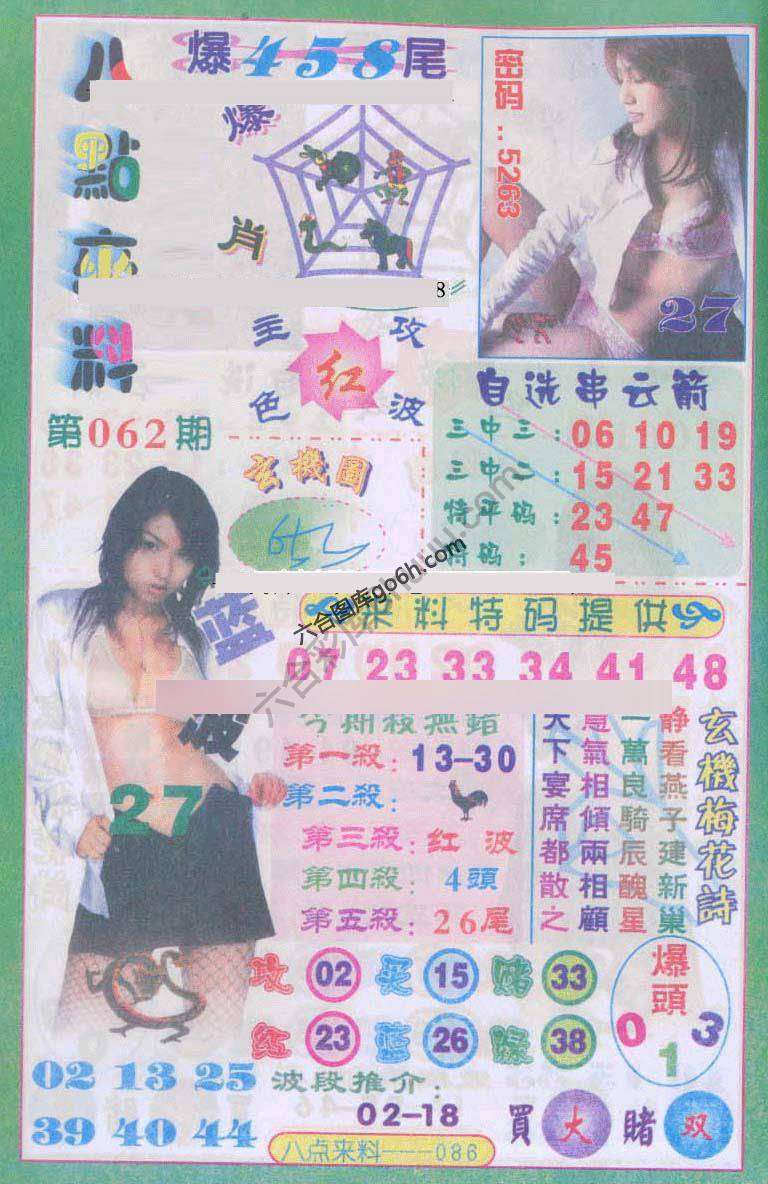 八點來料
爆458尾
爆肖
8
主攻
红
色波
第062期
玄機圖
密码..5263
27
自选串云箭
三中三：06 10 19
三中二：15 21 33
特平码：23 47
特码：45
六合图库go6h.com
来料特码提供
07 23 33 34 41 48
蓝波
27
今期殺無錯
第一殺：13-30
第二殺：
第三殺：红波
第四殺：4頭
第五殺：26尾
玄機梅花詩
静看燕子建新巢
一萬良騎辰醜星
意氣相傾兩相顧
天下宴席都散之
攻 02 买 15 赌 33
红 23 蓝 26 绿 38
爆頭
0 1 3
02 13 25
39 40 44
波段推介：
02-18
買大 赌双
八点来料---086